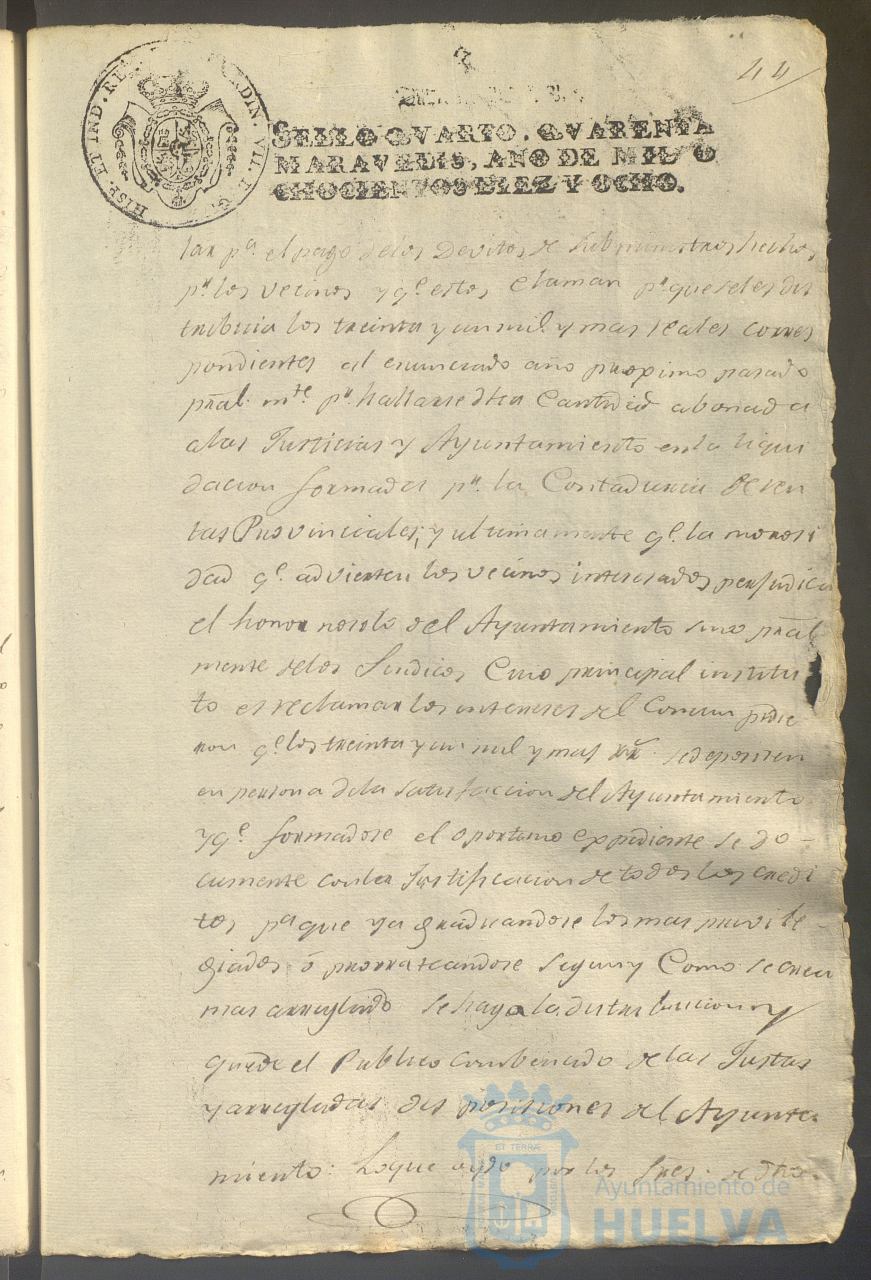 44
HISP. ET IND. RE DIN. VII. D. G.
SELLO QVARTO. QVARENTA
MARAVEDIS, AÑO DE MIL O
CHOCIENTOS DIEZ Y OCHO.
lar pª el pago delos Devitos de subministros hechos
pr. los vecinos y qe. estos claman pr. que seles dis
tribuia los treinta y un mil. y mas reales corres
pondientes al enunciado año proximo pasado
pral. mte. pr. hallarse dha Cantidad abonada
alas Justicias y Ayuntamiento en la liqui
dacion formada pr. la Contaduria de ren
tas Provinciales; y ultimamente qe. la morosi
dad qe. advierten los vecinos interesados perjudica
el honor nosolo del Ayuntamiento sino pral
mente delos Sindicos, Cuio principal institu
to es reclamar los intereses del Comun pidie
ron qe. los treinta y un mil y mas rrs. sedepositen
en persona dela satisfaccion del Ayuntamiento
y qe. formadose el oportuno expediente se do-
cumente conla Justificacion de todos los credi
tos pª que ya graduandose los mas privile-
giados ó prorrateandose segun y Como se crea
mas arreglado se haga la distribucion y
quede el Publico combencido de las Justas
y arregladas disposiciones del Ayunta-
miento. Loque oydo por los Sres. de dho.
ET TERRÆ
Ayuntamiento de
HUELVA